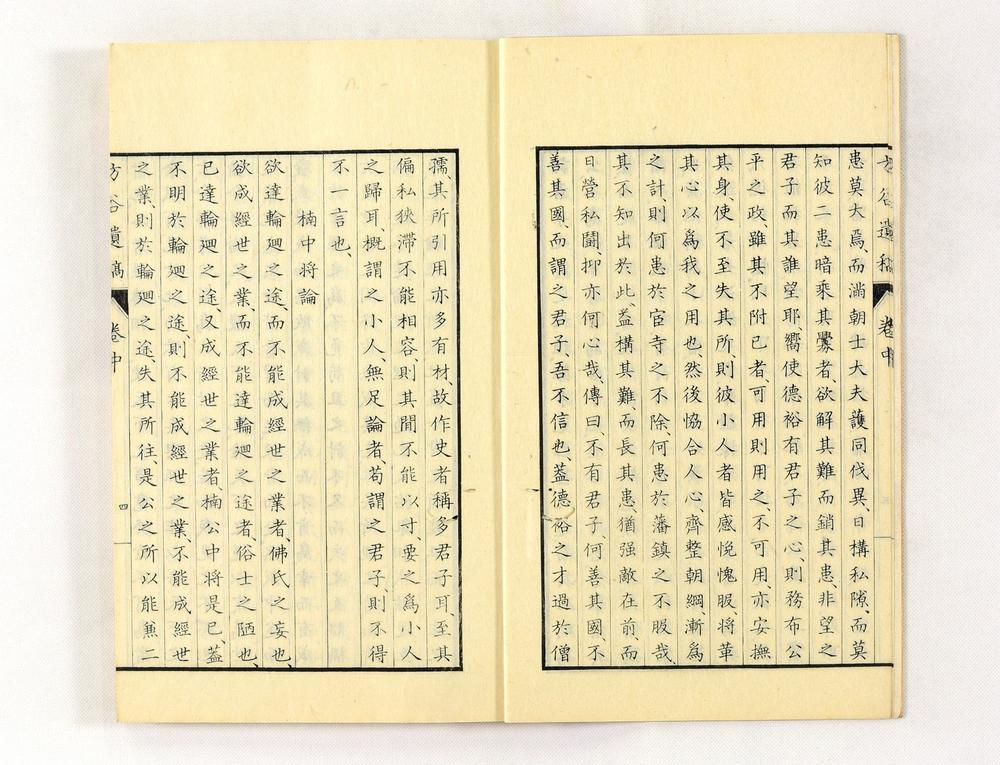 方谷遺稿 卷中
患莫大焉、而滿朝士大夫護同伐異、日構私隙、而莫
知彼二患暗乘其釁者、欲解其難而銷其患、非望之
君子而其誰望耶、嚮使德裕有君子之心、則務布公
平之政、雖其不附已者、可用則用之、不可用、亦安撫
其身、使不至失其所、則彼小人者皆感悅愧服、將革
其心以爲我之用也、然後恊合人心、齊整朝綱、漸爲
之計、則何患於宦寺之不除、何患於藩鎭之不服哉、
其不知出於此、益構其難、而長其患、猶强敵在前、而
日營私鬪、抑亦何心哉、傳曰、不有君子、何善其國、不
善其國、而謂之君子、吾不信也、葢德裕之才過於僧
孺、其所引用亦多有材、故作史者稱多君子耳、至其
偏私狹滯不能相容、則其間不能以寸、要之爲小人
之歸耳、槪謂之小人、無足論者、苟謂之君子、則不得
不一言也、
楠中將論
欲達輪廻之途、而不能成經世之業者、佛氏之妄也、
欲成經世之業、而不能達輪廻之途者、俗士之陋也、
已達輪廻之途、又成經世之業者、楠公中將是已、葢
不明於輪廻之途、則不能成經世之業、不能成經世
之業、則於輪廻之途、失其所往、是公之所以能兼二
方谷遺稿 卷中 四